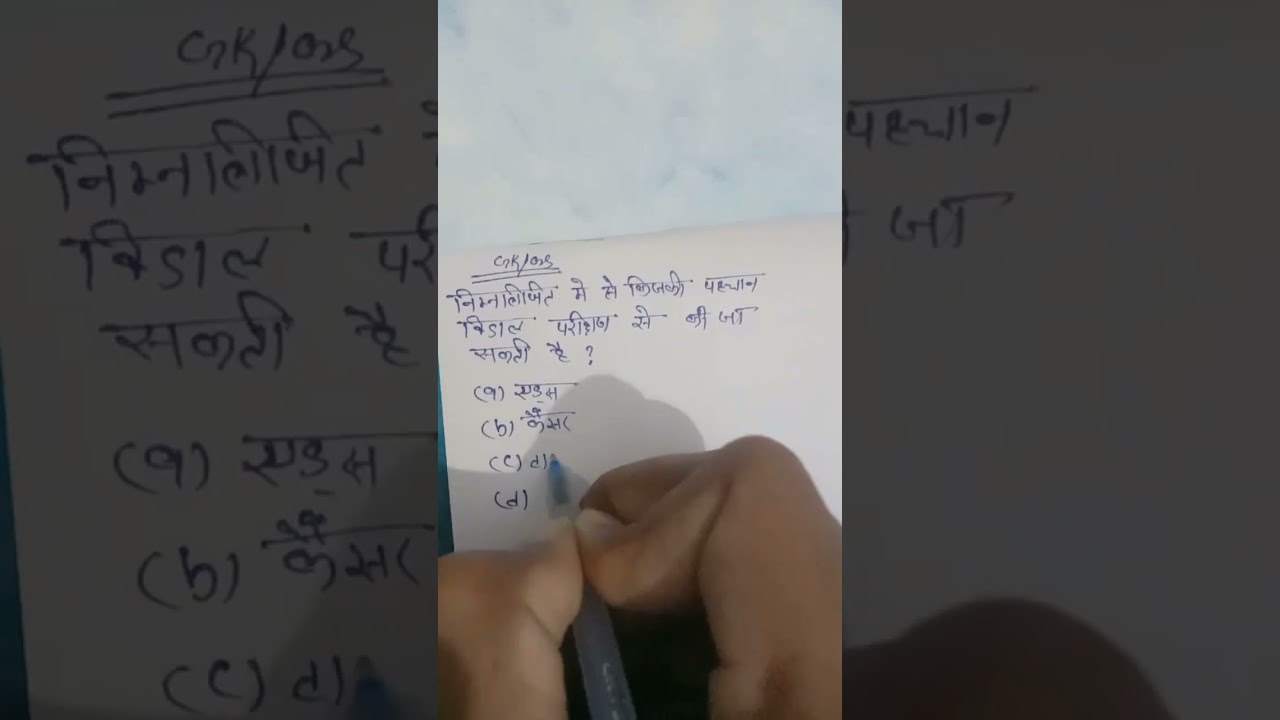 GK/GS
निम्नलिखित मे से किसकी पहचान
विडाल परीक्षण से की जा
सकती है ?
(a) एड्स
(b) कैंसर
(c) टा
(d)